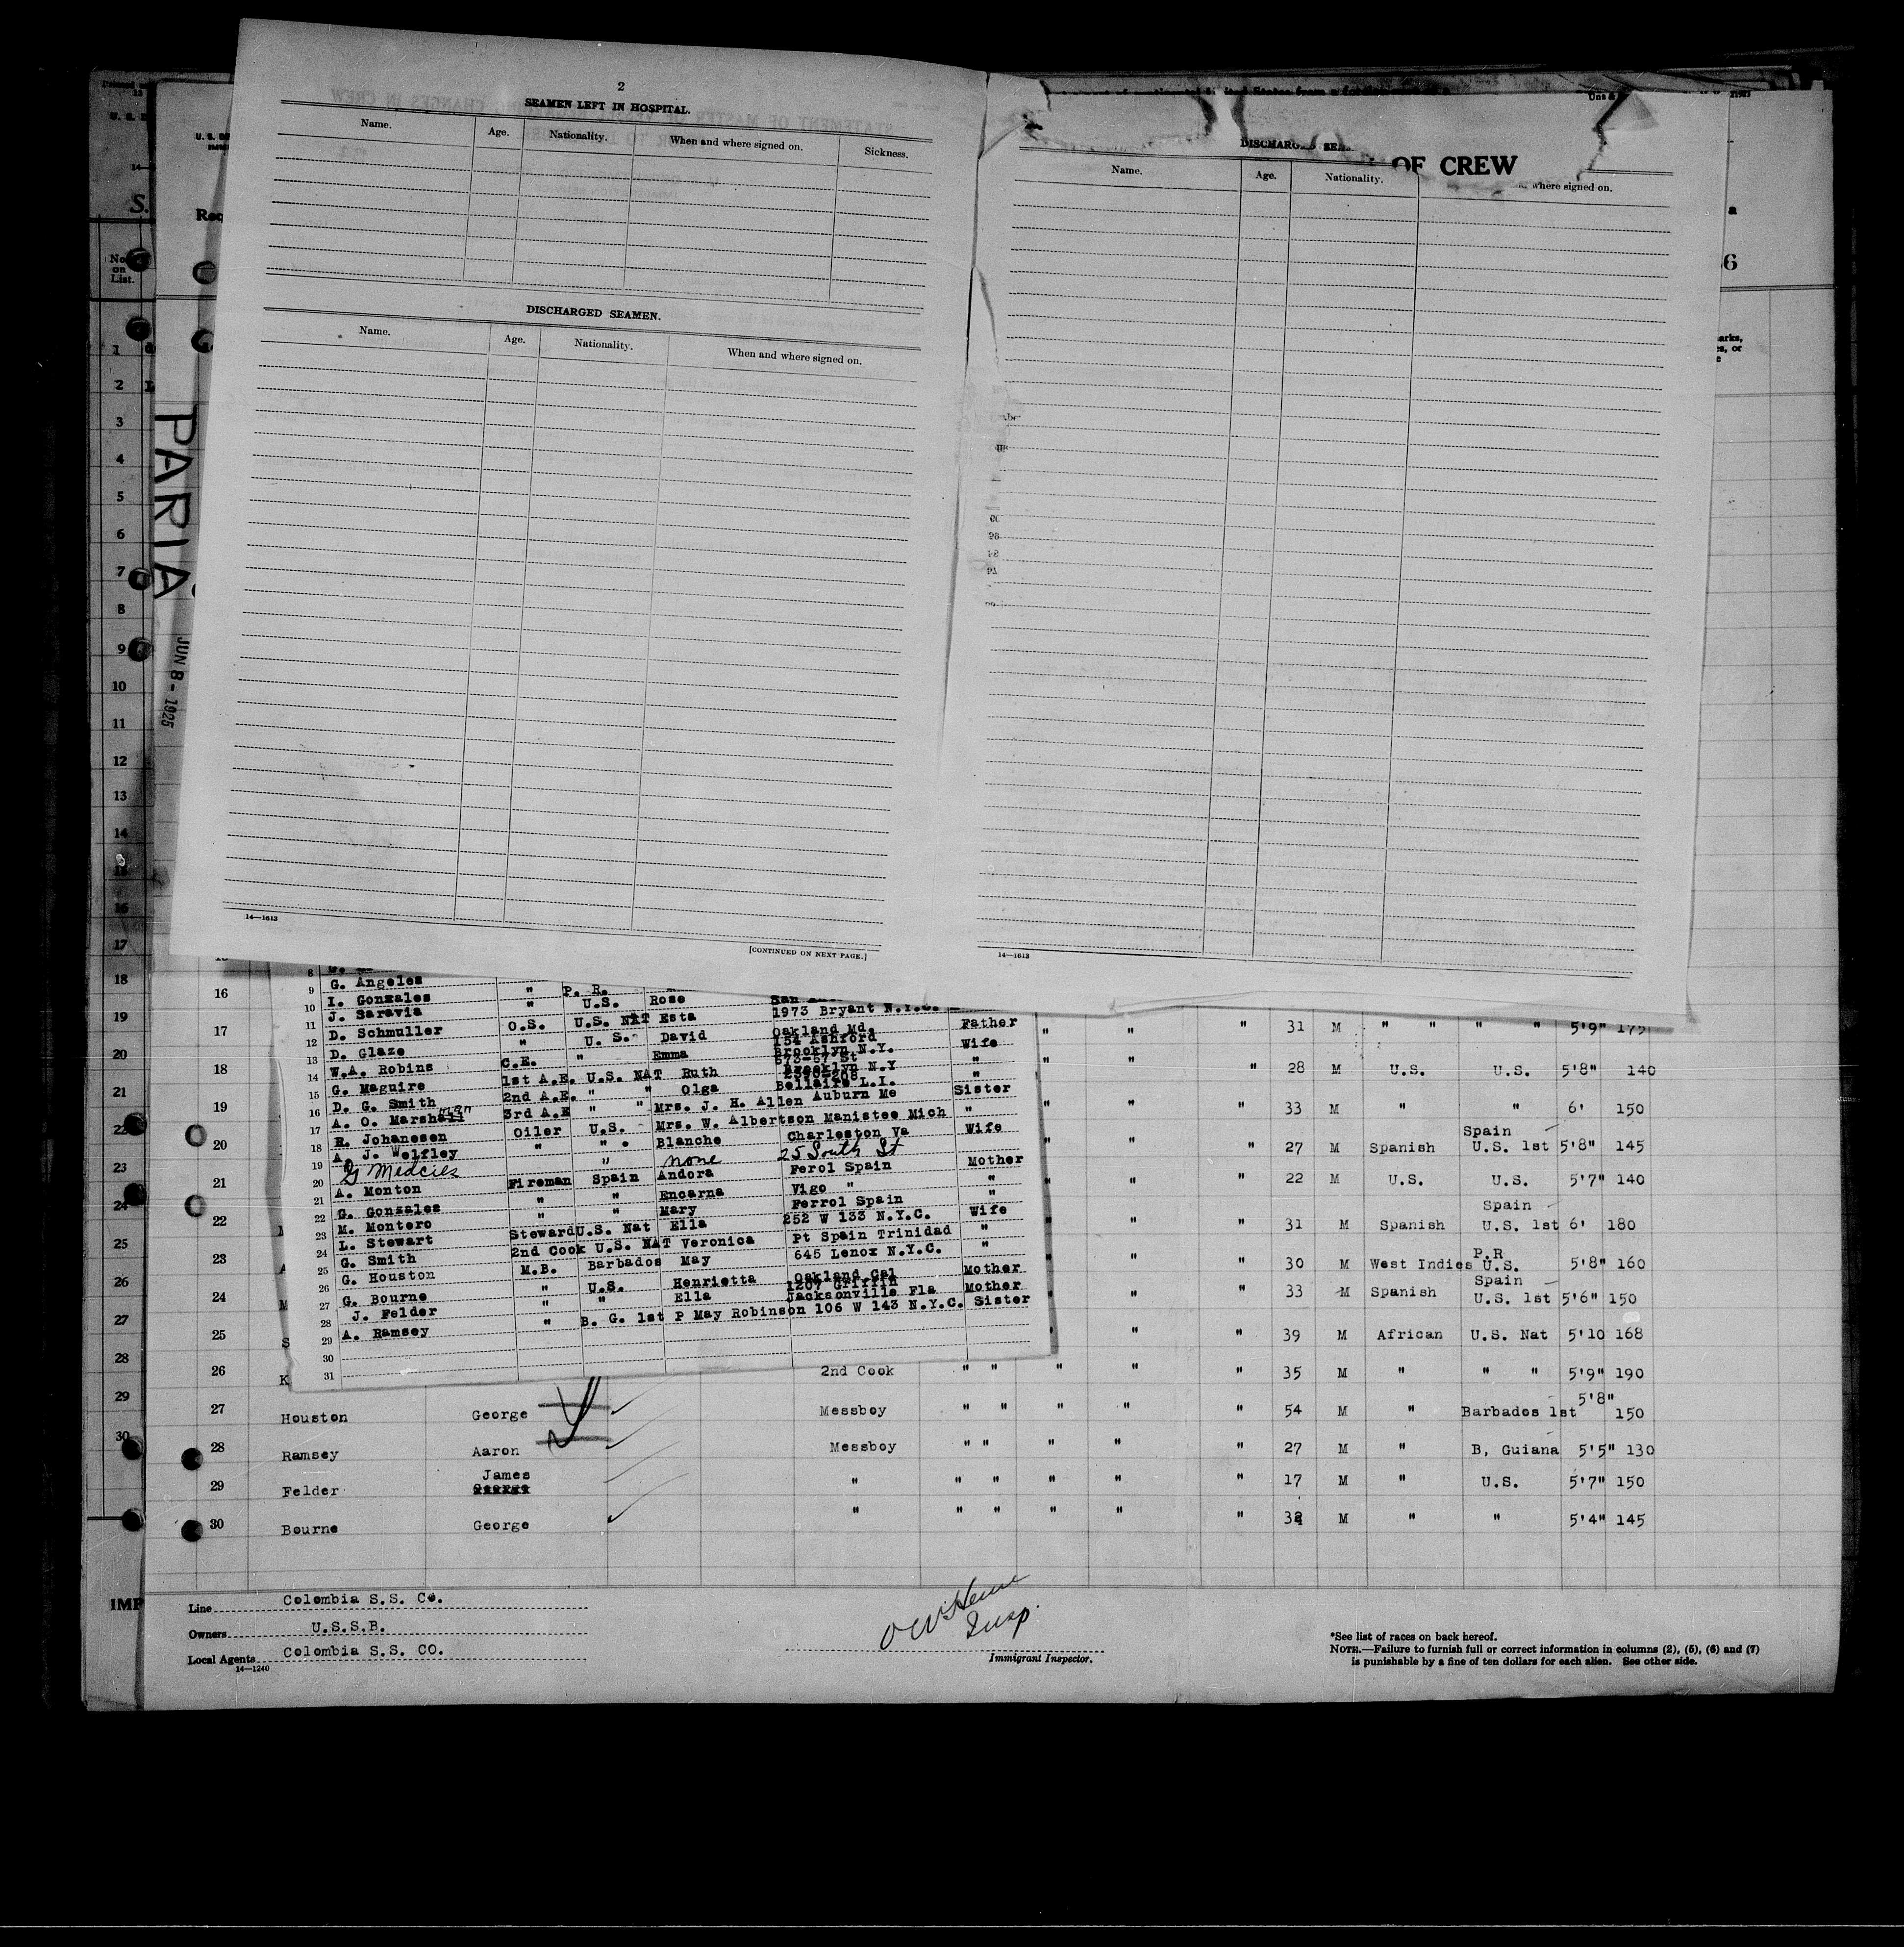 2
SEAMEN LEFT IN HOSPITAL.
Name. Age. Nationality. When and where signed on. Sickness.
DISCHARGED SEAMEN.
Name. Age. Nationality. When and where signed on.
14—1613
[CONTINUED ON NEXT PAGE.]
OF CREW
Name. Age. Nationality. where signed on.
14—1613
No.
on
List.
PARIA
JUN 8 - 1925
1
2
3
4
5
6
7
8
9
10
11
12
13
14
16
17
18
19
20
21
22
23
24
25
26
27
28
29
30
9 G. Angeles " P. R.
10 I. Gonzales " U.S. Rose
11 J. Saravia O.S. U.S. NAT Esta 1973 Bryant N.Y.
12 D. Schmuller " U. S. David Oakland Md. Father
13 D. Glaze C.E. " Emma 154 Ashford Brooklyn N.Y. Wife
14 W.A. Robins 1st A.E. U.S. NAT Ruth 573-57 St Brooklyn N.Y "
15 G. Maguire 2nd A.E. " " Olga Bellaire L.I. "
16 D. G. Smith 3rd A.E " " Mrs. J. H. Allen Auburn Me Sister
17 A. O. Marshall Oiler U.S. Mrs. W. Albertson Manistee Mich "
18 E. Johanesen " " Blanche Charleston Va Wife
19 A. J. Welfley " none 25 South St
20 G Medcies Fireman Spain Andora Ferol Spain Mother
21 A. Monton " " Encarna Vigo " "
22 G. Gonzales " " Mary Ferrol Spain "
23 M. Montero Steward U.S. Nat Ella 252 W 133 N.Y.C. Wife
24 L. Stewart 2nd Cook U.S. NAT Veronica Pt Spain Trinidad "
25 G. Smith M.B. Barbados May 645 Lenox N.Y.C. "
26 G. Houston " U.S. Henrietta Oakland Cal Mother
27 G. Bourne " " Ella 1207 Griffin Jacksonville Fla Mother
28 J. Felder " B. G. 1st P May Robinson 106 W 143 N.Y.C. Sister
29 A. Ramsey
30
31
16
17 " " " 31 M " " " " 5'9" 175
18 " " " 28 M U.S. U.S. 5'8" 140
19 " " " 33 M " " 6' 150
20 " " " 27 M Spanish Spain U.S. 1st 5'8" 145
21 " " " 22 M U.S. U.S. 5'7" 140
22 " " " 31 M Spanish Spain U.S. 1st 6' 180
23 " " " 30 M West Indies P.R U.S. 5'8" 160
24 " " " 33 M Spanish Spain U.S. 1st 5'6" 150
25 " " 39 M African U.S. Nat 5'10 168
26 2nd Cook " " " " " 35 M " " " 5'9" 190
27 Houston George Messboy " " " " " 54 M " Barbados 1st 5'8" 150
28 Ramsey Aaron Messboy " " " " " 27 M " B, Guiana 5'5" 130
29 Felder James George " " " " " " 17 M " U.S. 5'7" 150
30 Bourne George " " " " " " M " " 5'4" 145
IMP
Line Colombia S.S. Co.
Owners U.S.S.B.
Local Agents Colombia S.S. CO.
14—1240
Insp.
Immigrant Inspector.
*See list of races on back hereof.
NOTE.—Failure to furnish full or correct information in columns (2), (5), (6) and (7)
is punishable by a fine of ten dollars for each alien. See other side.